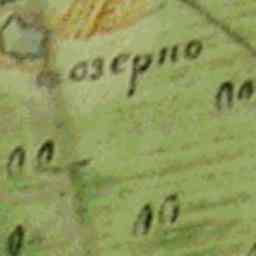 озерно